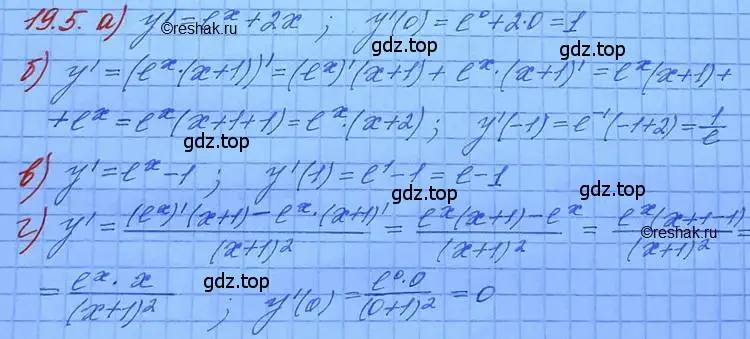 19.5. а) y' = e^x + 2x ; y'(0) = e^0 + 2·0 = 1
б) y' = (e^x·(x+1))' = (e^x)'(x+1) + e^x·(x+1)' = e^x(x+1) +
+ e^x = e^x(x+1+1) = e^x·(x+2) ; y'(-1) = e^{-1}(-1+2) = 1/e
в) y' = e^x - 1 ; y'(1) = e^1 - 1 = e - 1
г) y' = ((e^x)'(x+1) - e^x·(x+1)')/(x+1)^2 = (e^x(x+1) - e^x)/(x+1)^2 = (e^x(x+1-1))/(x+1)^2 =
= (e^x·x)/(x+1)^2 ; y'(0) = (e^0·0)/(0+1)^2 = 0
©reshak.ru
gdz.top
gdz.top
gdz.top
gdz.top
gdz.top
©reshak.ru
gdz.top
gdz.top